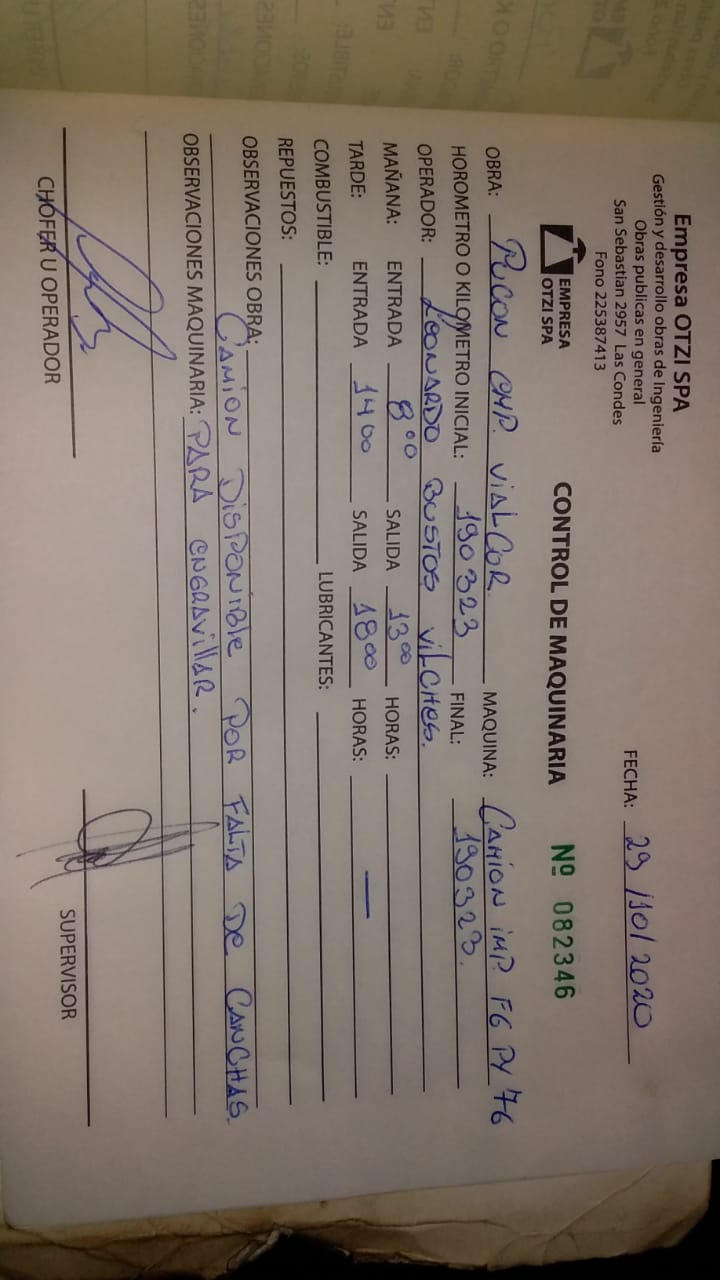 Empresa OTZI SPA
Gestión y desarrollo obras de Ingeniería
Obras publicas en general
San Sebastian 2957 Las Condes
Fono 225387413
FECHA: 29/10/2020
EMPRESA
OTZI SPA
CONTROL DE MAQUINARIA Nº 082346
OBRA: PUCON CMP. VIALCOR. MAQUINA: CAMION IMP. FG PY 76
HOROMETRO O KILOMETRO INICIAL: 190323 FINAL: 190323.
OPERADOR: LEONARDO BUSTOS VILCHES.
MAÑANA: ENTRADA 8:00 SALIDA 13:00 HORAS:
TARDE: ENTRADA 14 00 SALIDA 18:00 HORAS: —
COMBUSTIBLE: LUBRICANTES:
REPUESTOS:
OBSERVACIONES OBRA: CAMION DISPONIBLE POR FALTA DE CANCHAS.
OBSERVACIONES MAQUINARIA: PARA ENGRAVILLAR.
CHOFER U OPERADOR SUPERVISOR